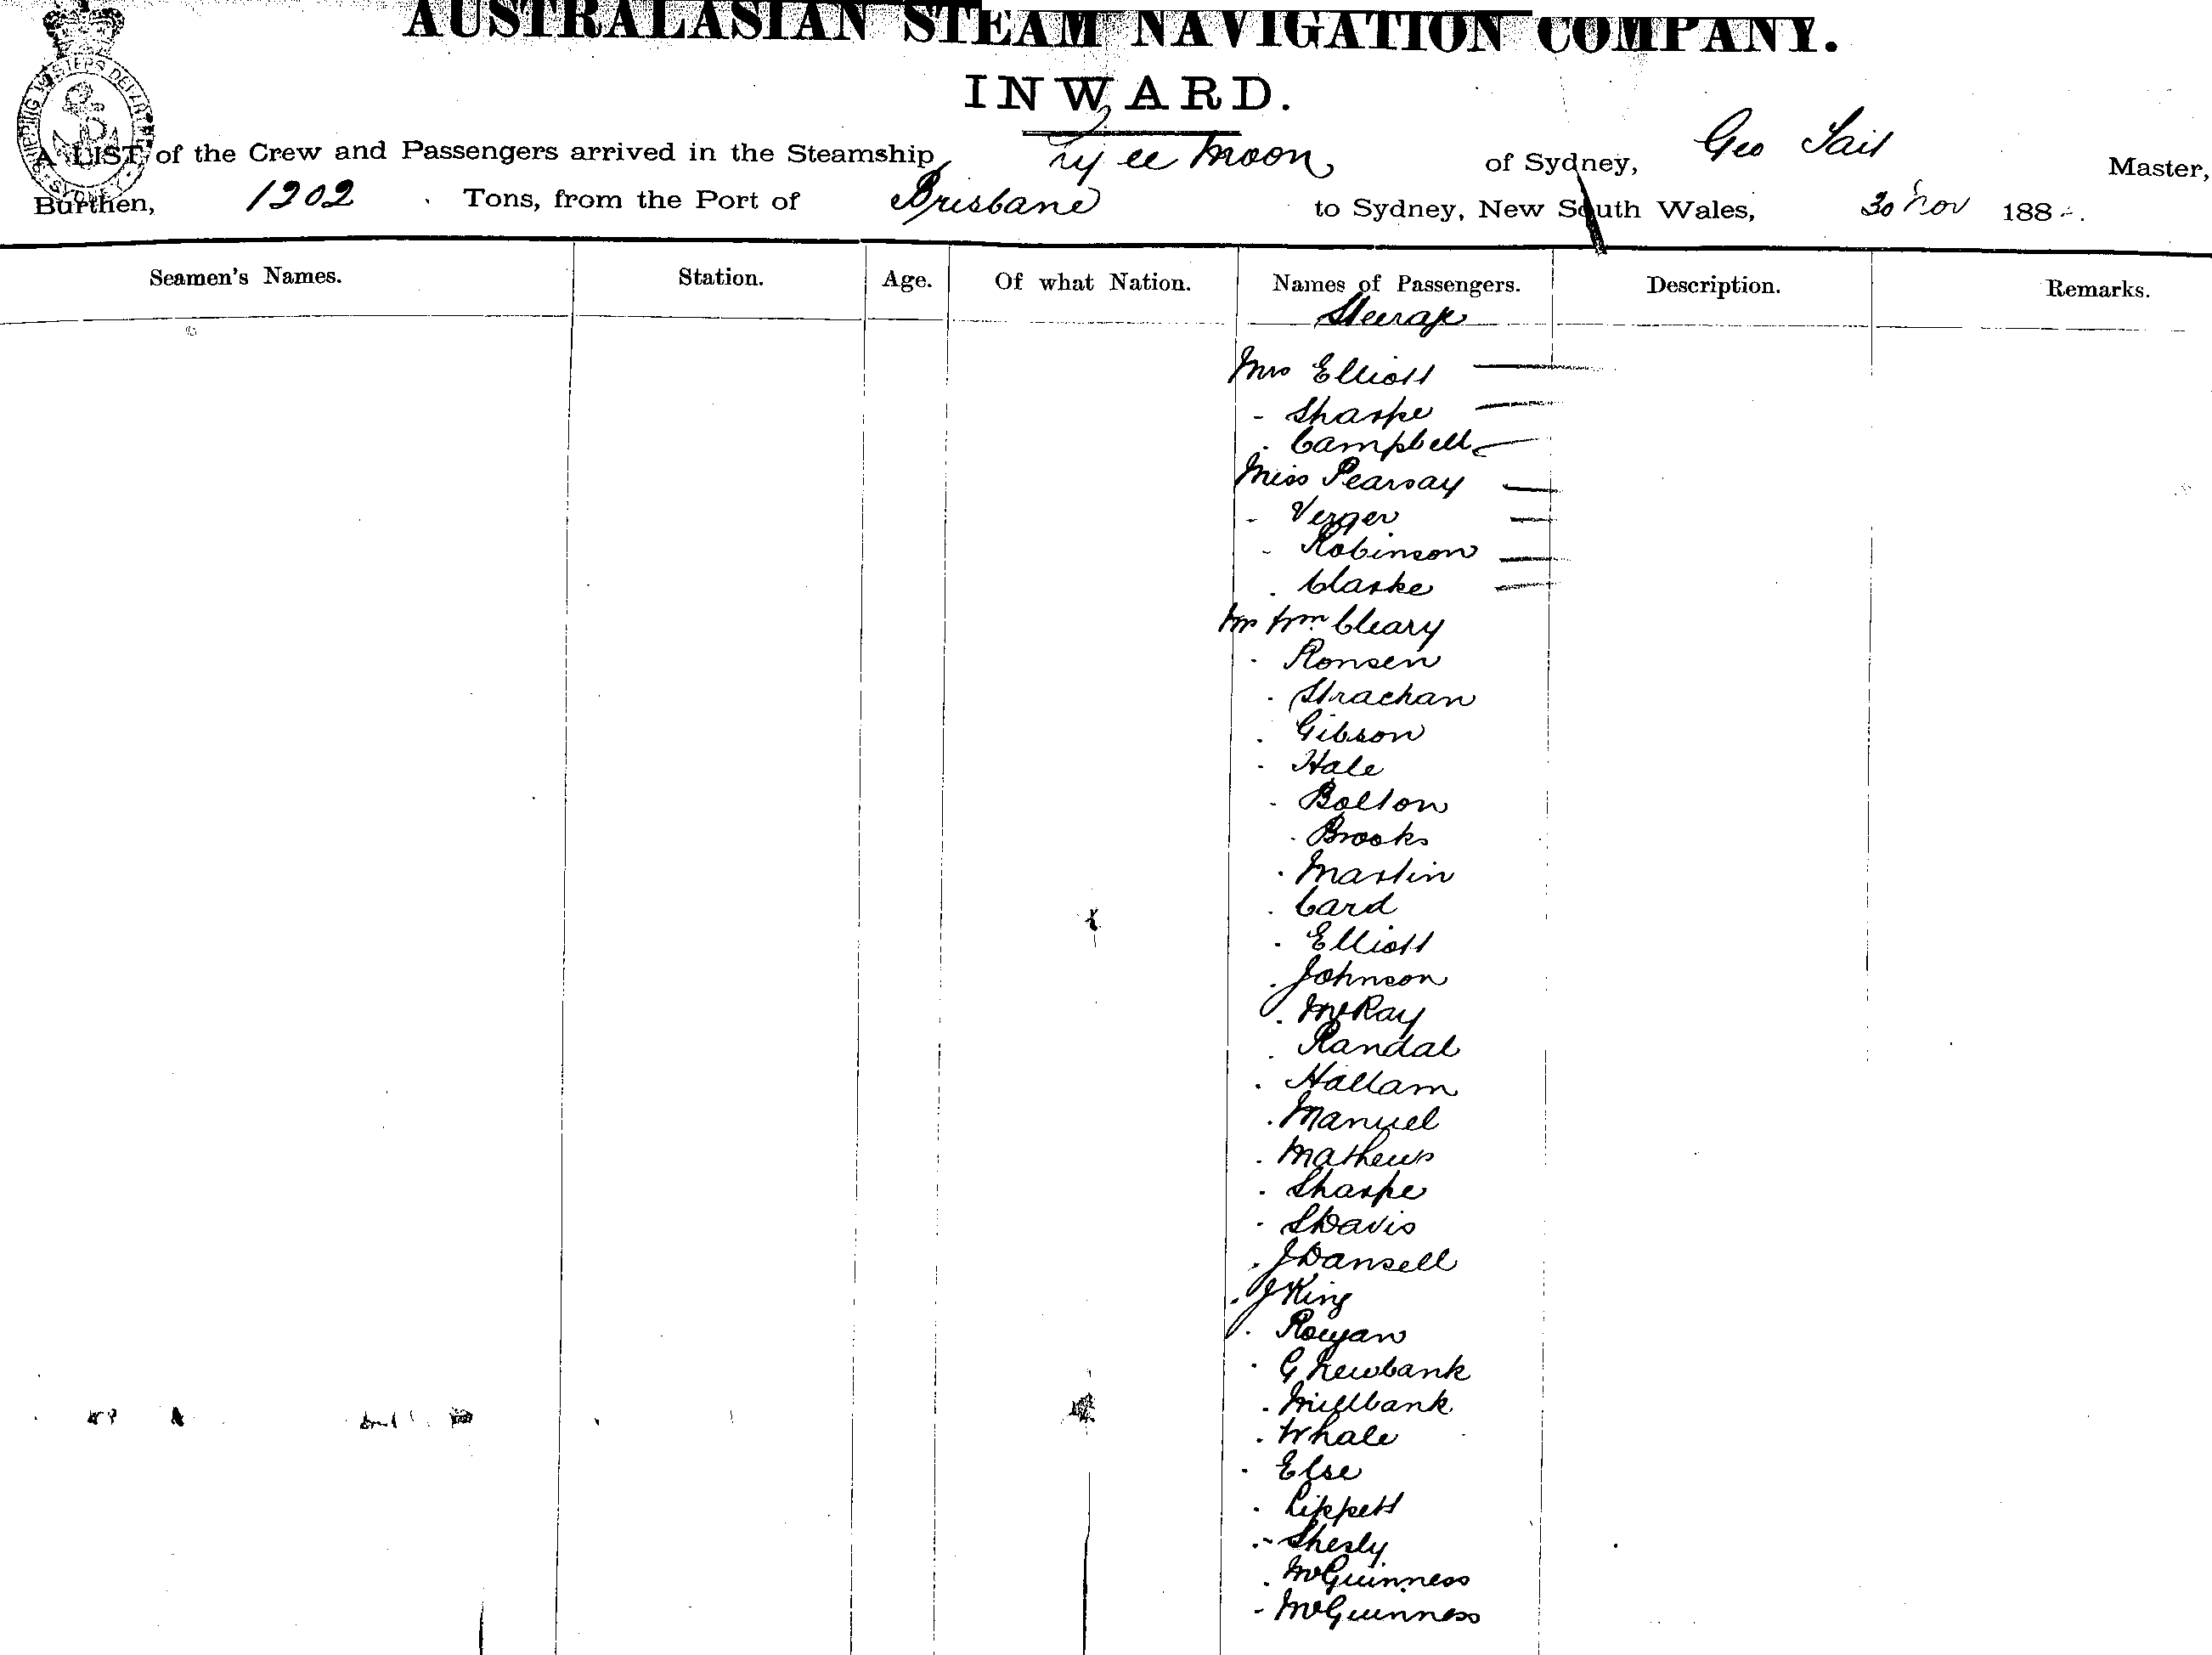 AUSTRALASIAN STEAM NAVIGATION COMPANY.
INWARD.
A LIST of the Crew and Passengers arrived in the Steamship Ly ee Moon of Sydney, Geo Tait Master,
Burthen, 1202 Tons, from the Port of Brisbane to Sydney, New South Wales, 30 Nov 188
Seamen's Names. Station. Age. Of what Nation. Names of Passengers. Description. Remarks.
Steerage
Mrs Elliott
- Sharpe
. Campbell
Miss Pearsay
- Verger
- Robinson
. Clarke
Mr Wm Cleary
. Ronsen
. Strachan
. Gibson
- Hale
- Bolton
. Brooks
. Martin
. Card
. Elliott
. Johnson
. McRay
. Randal
. Hallam
. Manuel
. Mathews
. Sharpe
. S Davis
. J Dansell
. J King
. Rouyan
. G Newbank
. Millbank
. Whale
- Else
. Lippett
- Shesly
. McGuinness
- McGuinness